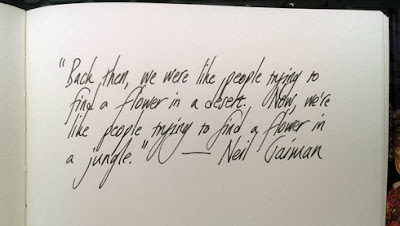 "Back then, we were like people trying to
find a flower in a desert. Now, we're
like people trying to find a flower in
a jungle." — Neil Gaiman